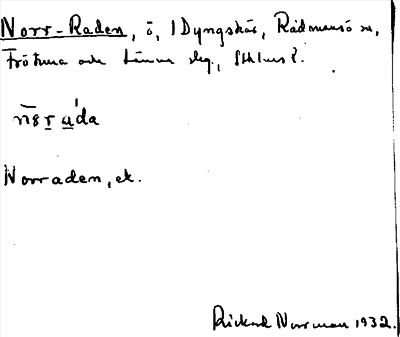 Norr-Raden, ö, 1 Dyngskär, Rådmansö sn,
Frötuna och Länna slg, Sthlms l.
Norraden, ek.
Rickard Norrman 1932.